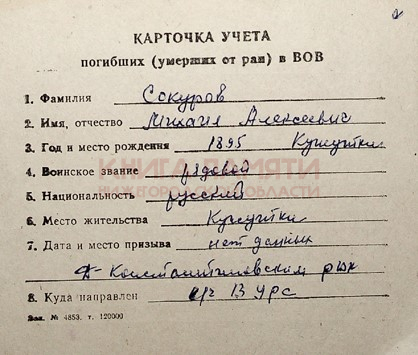 КАРТОЧКА УЧЕТА
погибших (умерших от ран) в ВОВ
1. Фамилия Сокуров
2. Имя, отчество Михаил Алексеевич
3. Год и место рождения 1895
КНИГА ПАМЯТИ
4. Воинское звание рядовой
НИЖЕГОРОДСКОЙ ОБЛАСТИ
5. Национальность русский
6. Место жительства
7. Дата и место призыва нет данных
Константиновским рвк
8. Куда направлен
Зак. № 4853. т. 120000